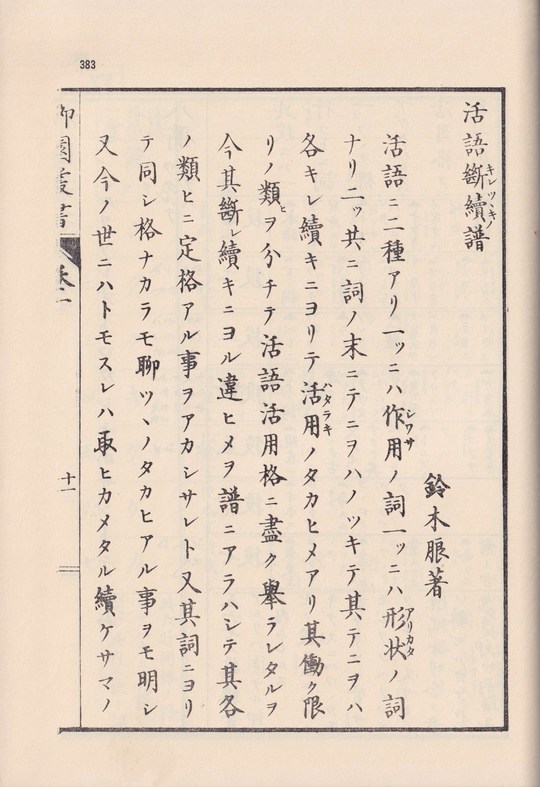 383
活語斷續譜
キレツヽキノ
鈴木朖著
活語ニ二種アリ一ッニハ作用ノ詞一ッニハ形状ノ詞
シワサ
アリカタ
ナリ二ッ共ニ詞ノ末ニテニヲハノツキテ其テニヲハ
各キレ續キニヨリテ活用ノタカヒメアリ其働ク限
ハタラキ
リノ類ヲ分チテ活語活用格ニ盡ク舉ラレタルヲ
ヒ
今其斷レ續キニヨル違ヒメヲ譜ニアラハシテ其各
ノ類ヒニ定格アル事ヲアカシサレト又其詞ニヨリ
テ同シ格ナカラモ聊ツヽノタカヒアル事ヲモ明シ
又今ノ世ニハトモスレハ取ヒカメタル續ケサマノ
園叢書
十一